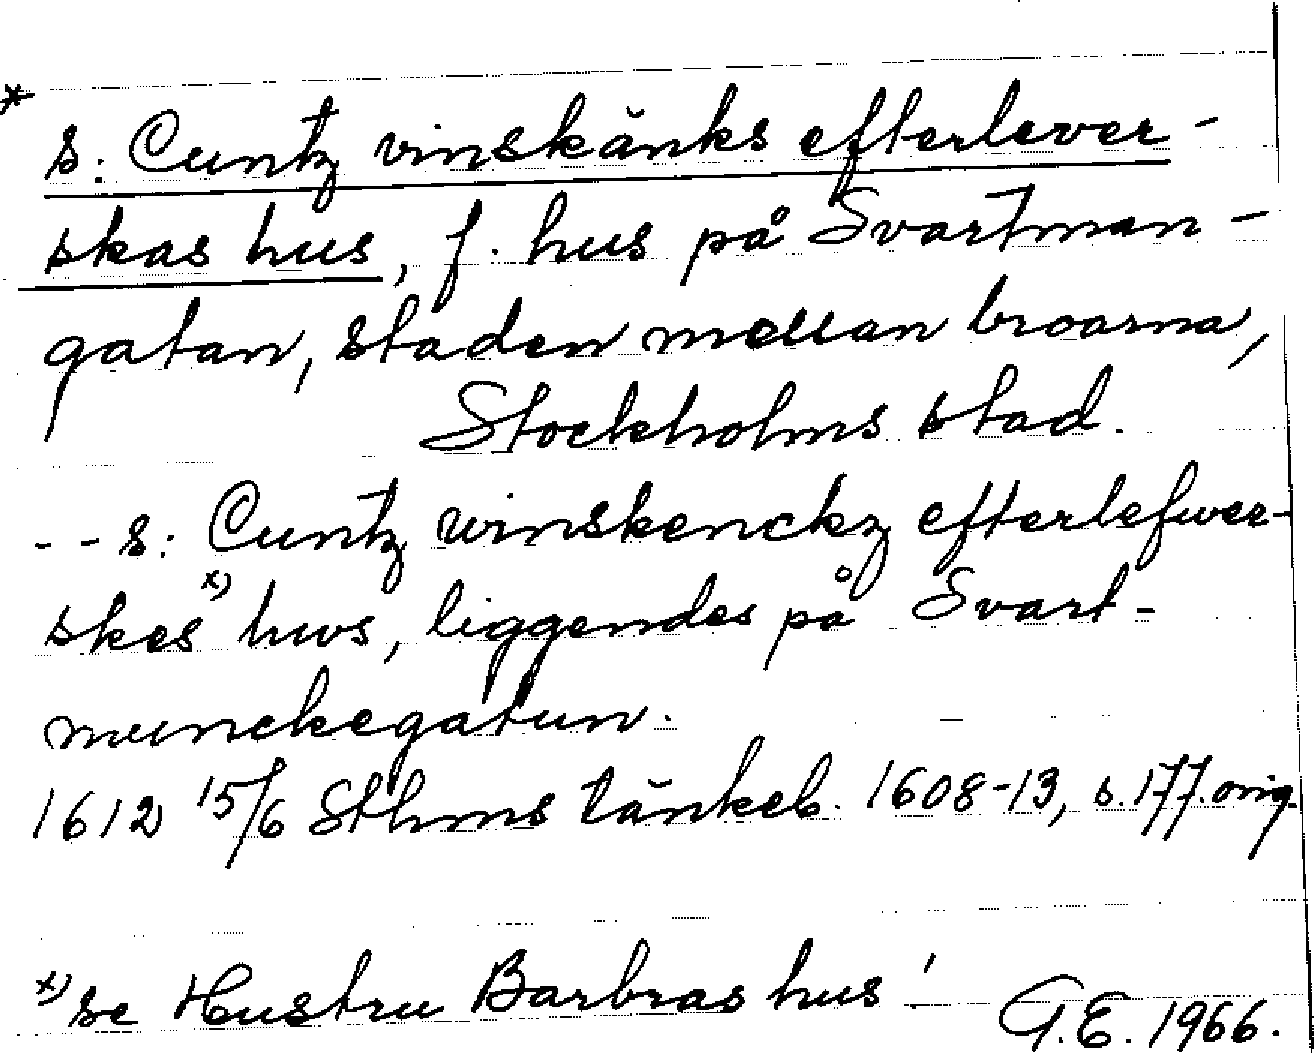 * s: Cuntz vinskänks efterlever-
skas hus, f. hus på Svartman-
gatan, staden mellan broarna,
Stockholms stad.
- - s: Cuntz winskenckz efterlefwer-
skes x) hws, liggendes på Svart-
munckegatun.
1612 15/6 Sthms tänkeb. 1608-13, s. 177. orig.
x) se Hustru Barbras hus!
G.E. 1966.